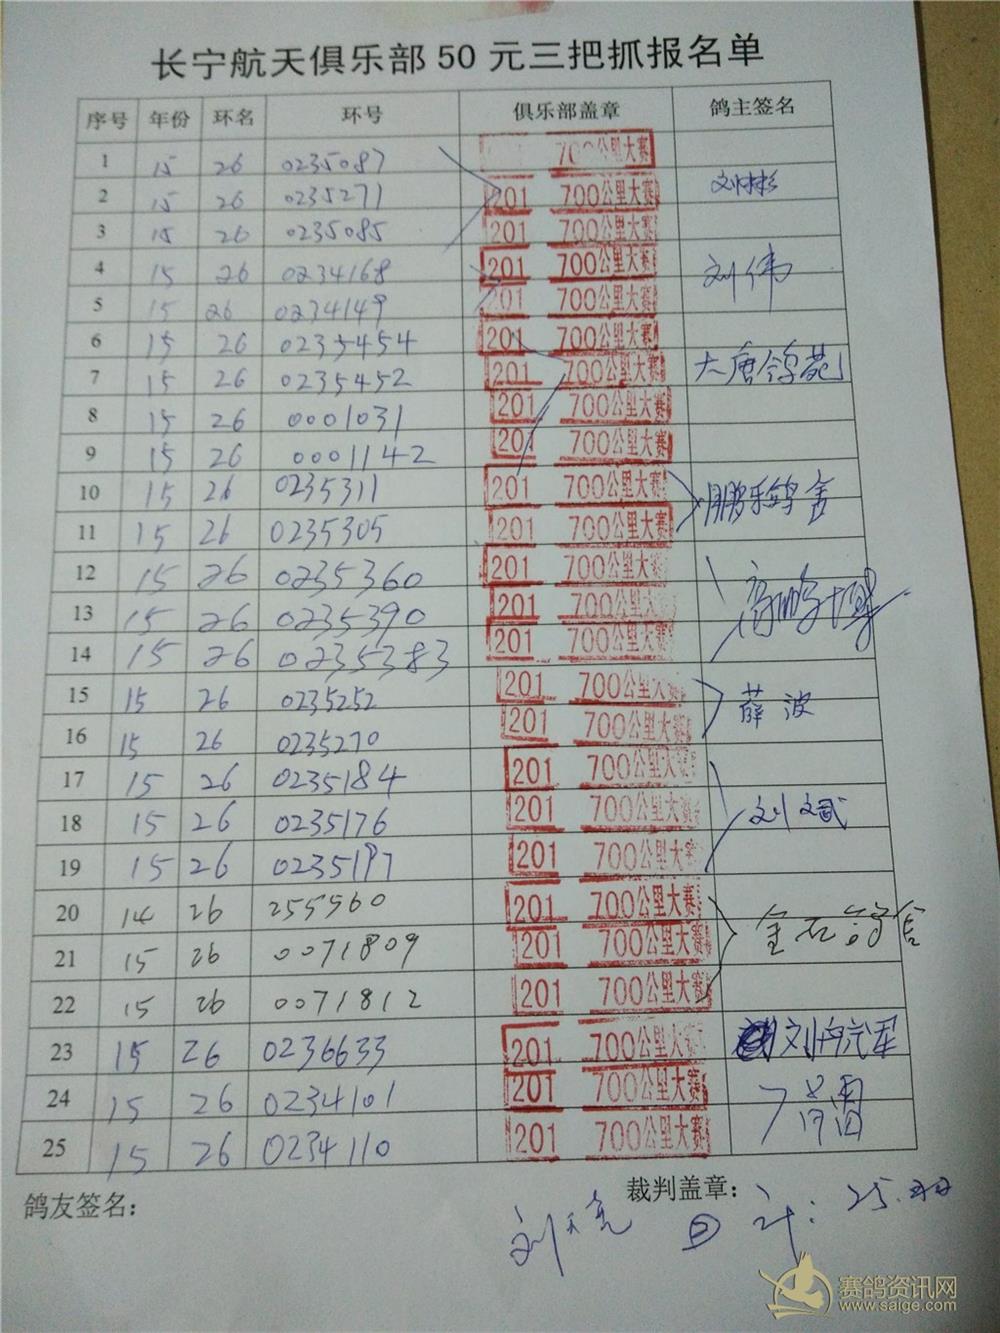 长宁航天俱乐部50元三把抓报名单
序号 年份 环名 环号 俱乐部盖章 鸽主签名
1 15 26 0235087 700公里大赛
2 15 26 0235271 201 700公里大赛 刘彬彬
3 15 26 0235085 201 700公里大赛
4 15 26 0234168 201 700公里大赛 刘伟
5 15 26 0234149 201 700公里大赛
6 15 26 0235454 201 700公里大赛
7 15 26 0235452 201 700公里大赛 大唐鸽苑
8 15 26 0001031 201 700公里大赛
9 15 26 0001142 201 700公里大赛
10 15 26 0235311 201 700公里大赛 鹏乐鸽舍
11 15 26 0235305 201 700公里大赛
12 15 26 0235360 201 700公里大赛
13 15 26 0235390 201 700公里大赛
14 15 26 0235383 201 700公里大赛
15 15 26 0235252 201 700公里大赛 薛波
16 15 26 0235270 201 700公里大赛
17 15 26 0235184 201 700公里大赛
18 15 26 0235176 201 700公里大赛 刘文武
19 15 26 0235197 201 700公里大赛
20 14 26 255960 201 700公里大赛
21 15 26 0071809 201 700公里大赛 金石鸽舍
22 15 26 0071812 201 700公里大赛
23 15 26 0236633 201 700公里大赛
24 15 26 0234101 201 700公里大赛
25 15 26 0234110 201 700公里大赛
鸽友签名： 裁判盖章：
计：25.
赛鸽资讯网
www.saige.com